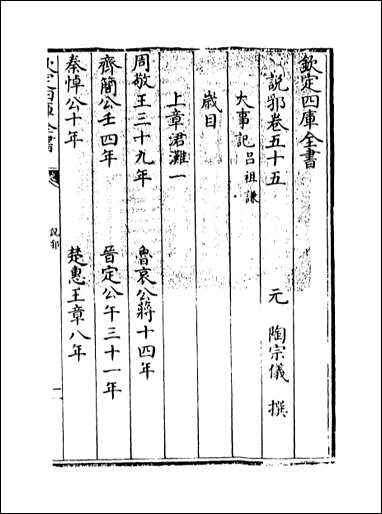 欽定四庫全書
說郛卷五十五
元 陶宗儀 撰
大事記呂祖謙
歲目
上章涒灘一
周敬王三十九年 魯哀公蔣十四年
齊簡公壬四年 晉定公午三十一年
秦悼公十年 楚惠王章八年
欽定四庫全書
說郛